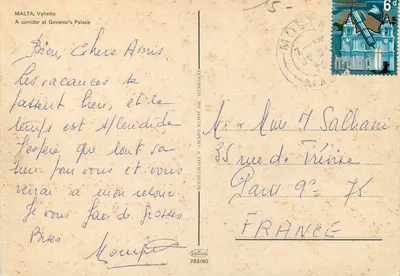 MALTA, Valletta
A corridor at Govenor's Palace
Bien, Chers Amis.
Les vacances se
passent bien, et le
temps est splendide
J'espère que tout va
bien pour vous et vous
verrai à mon retour
Je vous fais de grosses
Bises
5-
MOS
6d
Mr & Mme Salham
35 rue de Trévise
Paris 9e 75
FRANCE
763/80